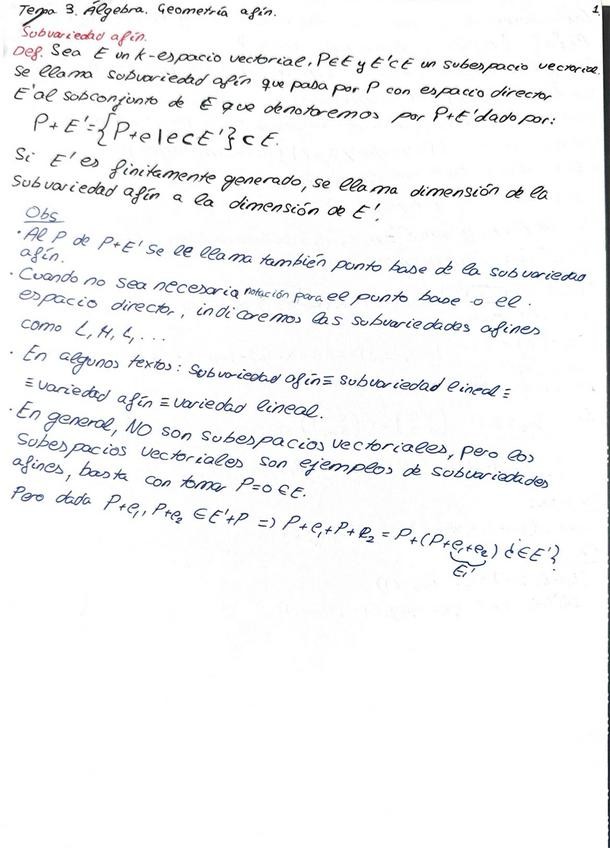 Tema 3. Álgebra. Geometría afín. 1
Subvariedad afín.
Def. Sea E un k-espacio vectorial, P∈E y E'⊂E un subespacio vectorial
Se llama subvariedad afín que pasa por P con espacio director
E' al subconjunto de E que denotaremos por P+E' dado por:
P+E'={P+e|e∈E'}⊂E.
Si E' es finitamente generado, se llama dimensión de la
subvariedad afín a la dimensión de E'.
Obs
· Al P de P+E' se le llama también punto base de la subvariedad
afín.
· Cuando no sea necesaria notación para el punto base o el
espacio director, indicaremos las subvariedades afines
como L, M, L, ...
· En algunos textos: subvariedad afín ≡ subvariedad lineal ≡
≡ variedad afín ≡ variedad lineal.
· En general, NO son subespacios vectoriales, pero los
subespacios vectoriales son ejemplos de subvariedades
afines, basta con tomar P=0∈E.
Pero dada P+e₁, P+e₂ ∈ E'+P => P+e₁+P+e₂ = P+(P+e₁+e₂) ¿∈E'?
E'